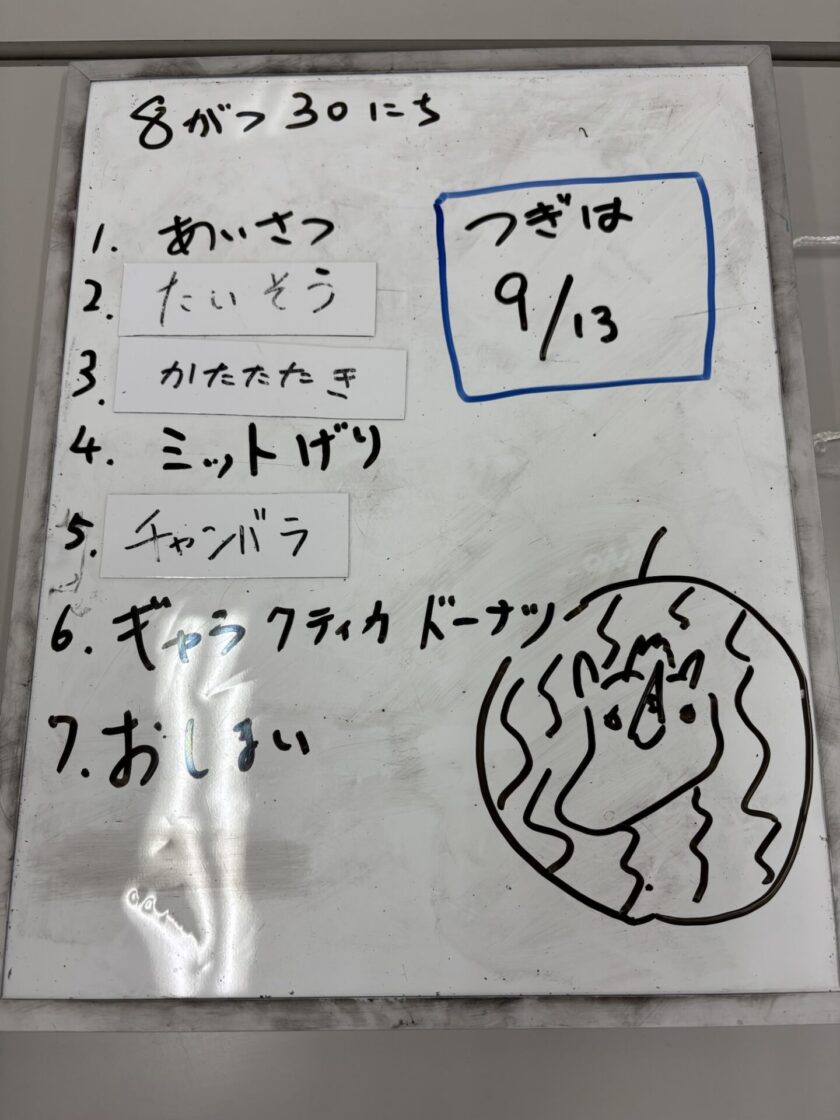 8がつ30にち
1. あいさつ
2. たいそう
3. かたたたき
4. ミットげり
5. チャンバラ
6. ギャラクティカドーナツ
7. おしまい
つぎは
9/13